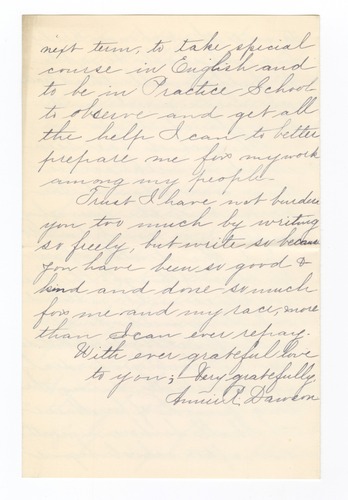 next term, to take special
course in English and
to be in Practice School
to observe and get all
the help I can to better
prepare me for my work
among my people.
Trust I have not burdened
you too much by writing
so freely, but write so because
you have been so good &
kind and done so much
for me and my race, more
than I can ever repay.
With ever grateful love
to you; Very gratefully
Annie R. Dawson